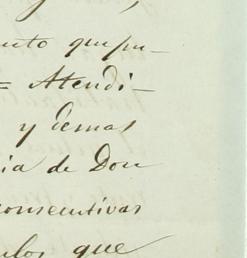 que pu-
= Atendi-
y demas
ia de Don
consecutivas
que